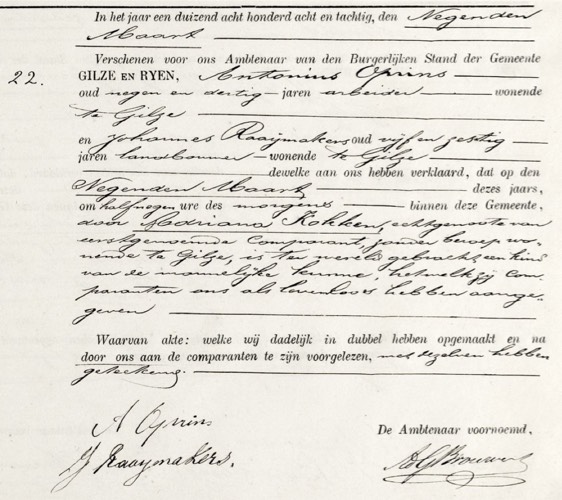 In het jaar een duizend acht honderd acht en tachtig, den Negenden
Maart
Verschenen voor ons Ambtenaar van den Burgerlijken Stand der Gemeente
22. GILZE EN RYEN, Antonius Oprins
oud negen en dertig jaren arbeider wonende
te Gilze
en Johannes Raaijmakers oud vijf en zestig
jaren landbouwer wonende te Gilze
dewelke aan ons hebben verklaard, dat op den
Negenden Maart dezes jaars,
om half negen ure des morgens binnen deze Gemeente,
door Adriana Kokken, echtgenoote van
eerstgenoemde Comparant, zonder beroep wo-
nende te Gilze, is ter wereld gebracht een kind
van de mannelijke kunne, hetwelk zij Com-
paranten ons als levenloos hebben aange-
geven
Waarvan akte: welke wij dadelijk in dubbel hebben opgemaakt en na
door ons aan de comparanten te zijn voorgelezen, met dezelven hebben
geteekend.
A Oprins
De Ambtenaar voornoemd,
J Raaymakers.